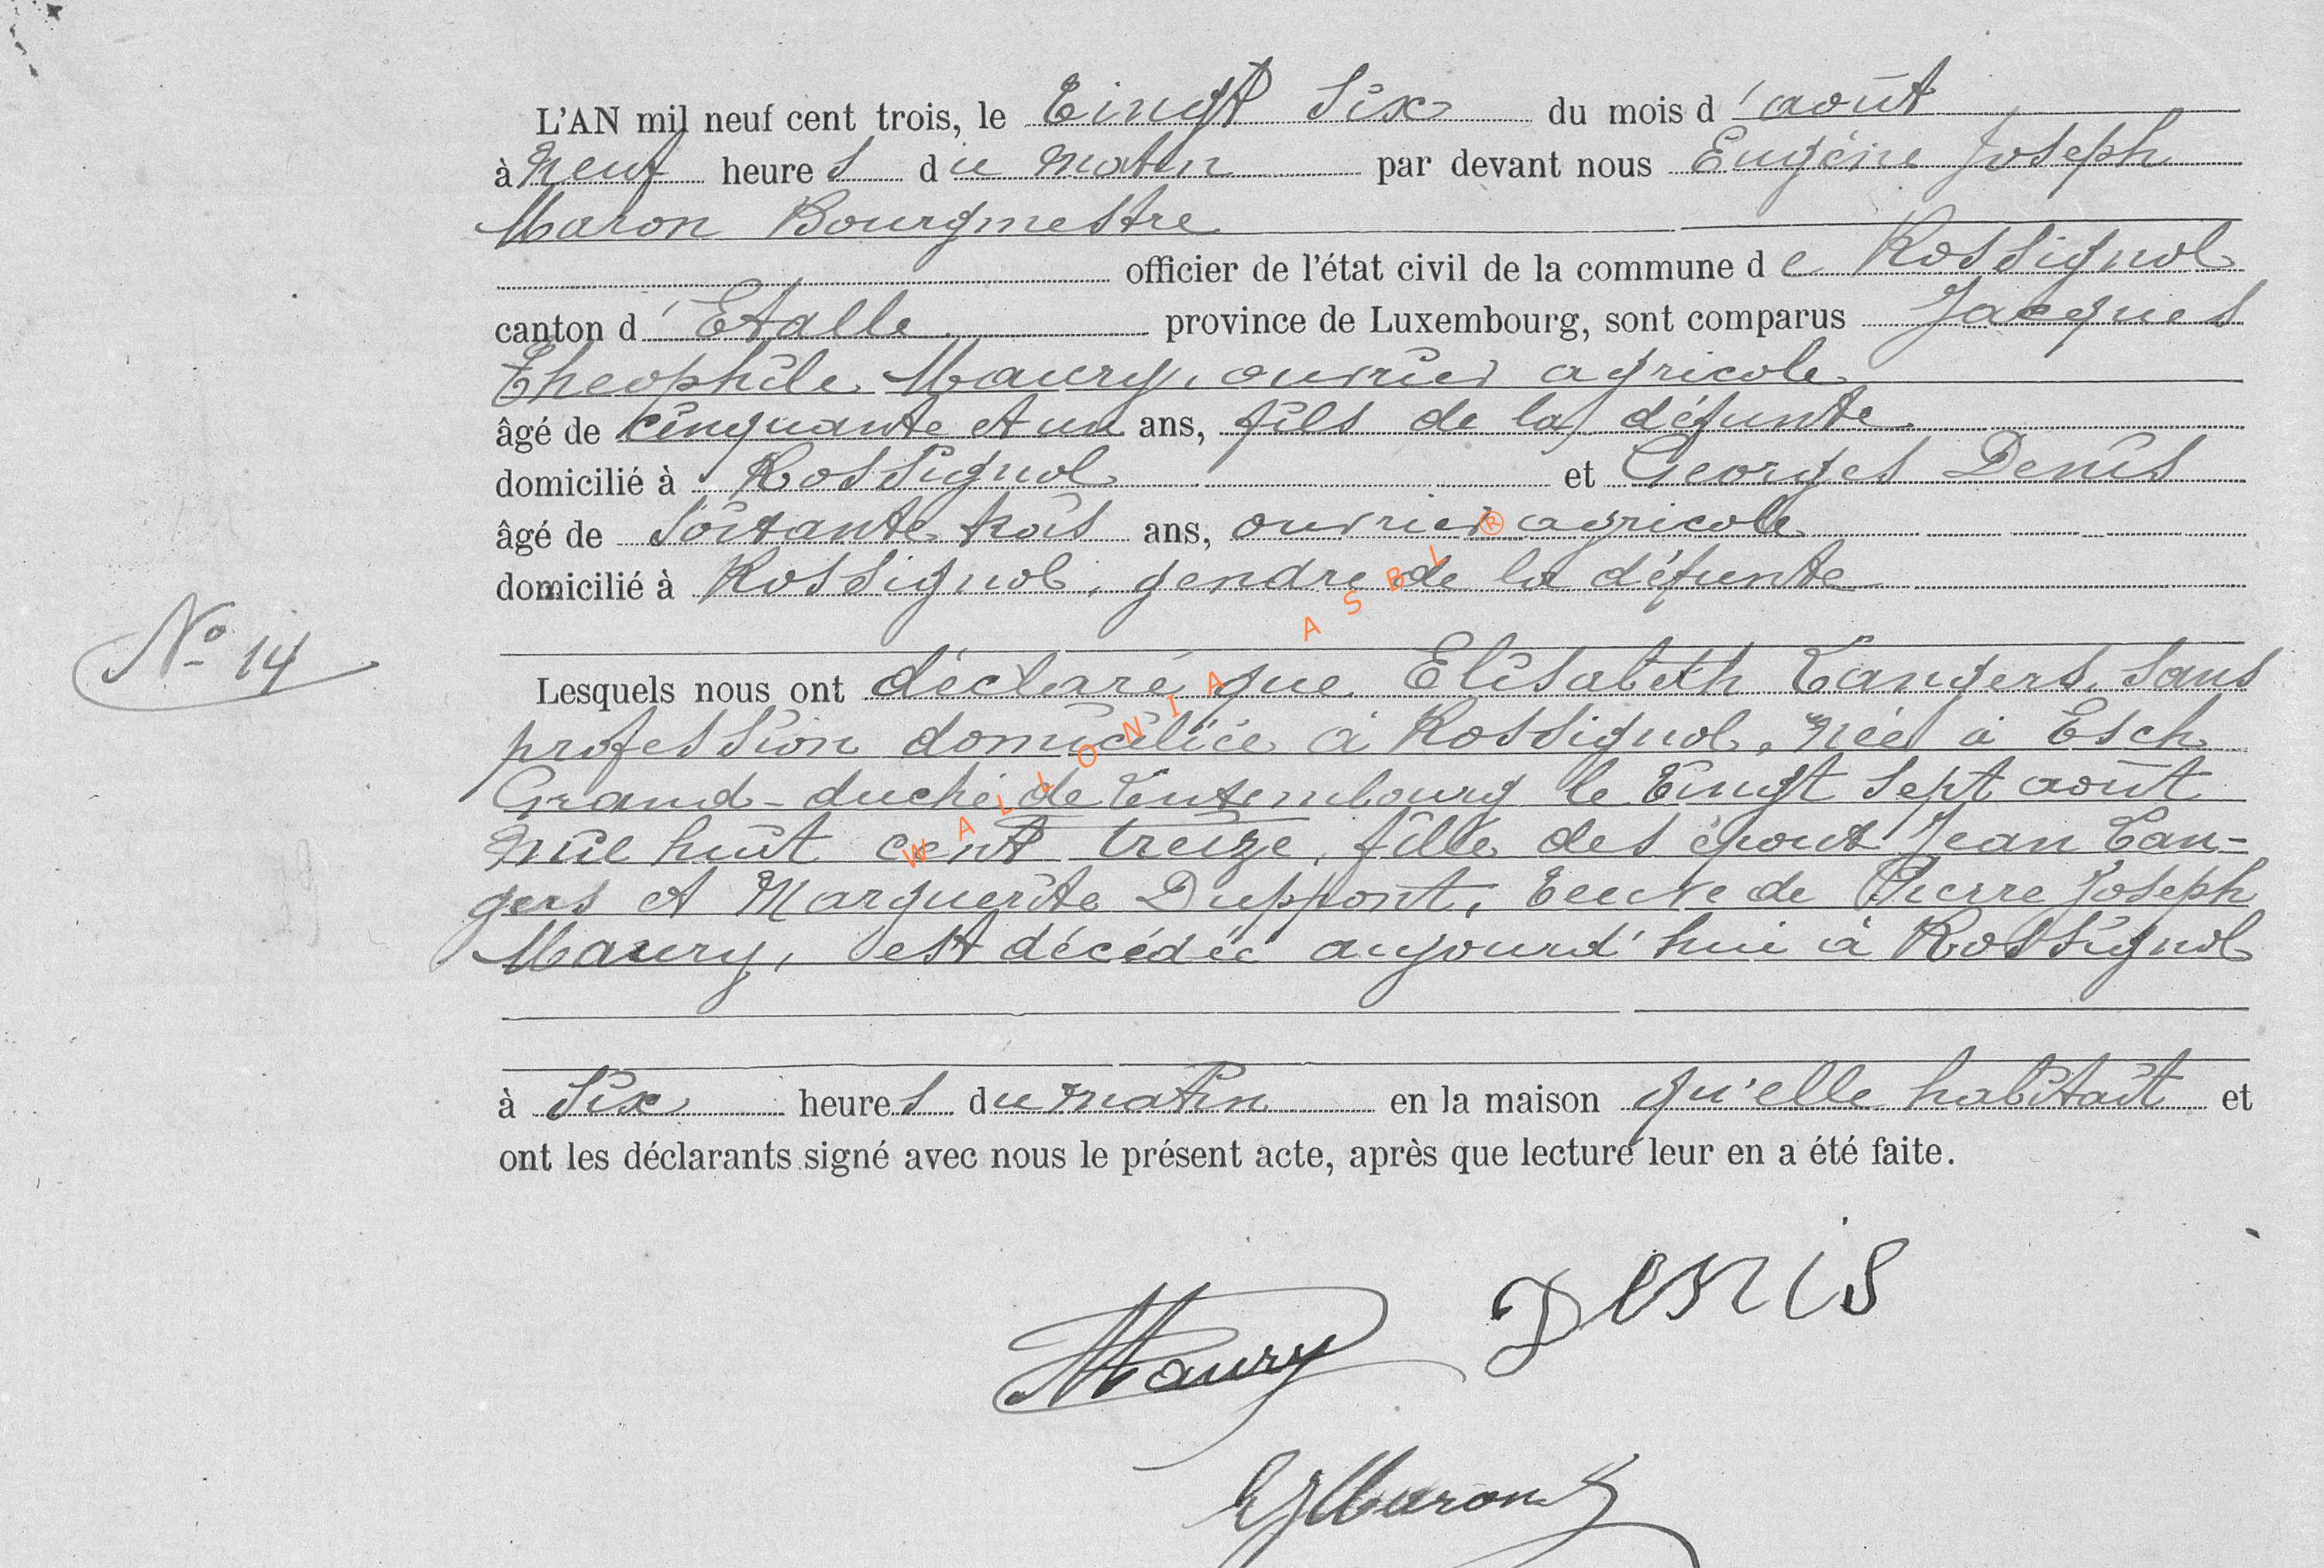 L'AN mil neuf cent trois, le Vingt Six du mois d'août
à Neuf heures du matin par devant nous Eugène Joseph
Maron Bourgmestre
officier de l'état civil de la commune de Rossignol
canton d'Etalle province de Luxembourg, sont comparus Jacques
Théophile Maury, ouvrier agricole
âgé de cinquante et un ans, fils de la défunte
domicilié à Rossignol et Georges Denis
âgé de Soixante trois ans, ouvrier agricole
domicilié à Rossignol, gendre de la défunte
No 14
Lesquels nous ont déclaré que Elisabeth Vangers, sans
profession domiciliée à Rossignol, née à Esch
Grand-duché de Luxembourg le Vingt Sept août
mil huit cent treize, fille des époux Jean Van-
gers et Marguerite Duppont, Veuve de Pierre Joseph
Maury, est décédée aujourd'hui à Rossignol
à Six heures du matin en la maison qu'elle habitait et
ont les déclarants signé avec nous le présent acte, après que lecture leur en a été faite.
Maury Denis
EJMaron
WALLONIA ASBL ®